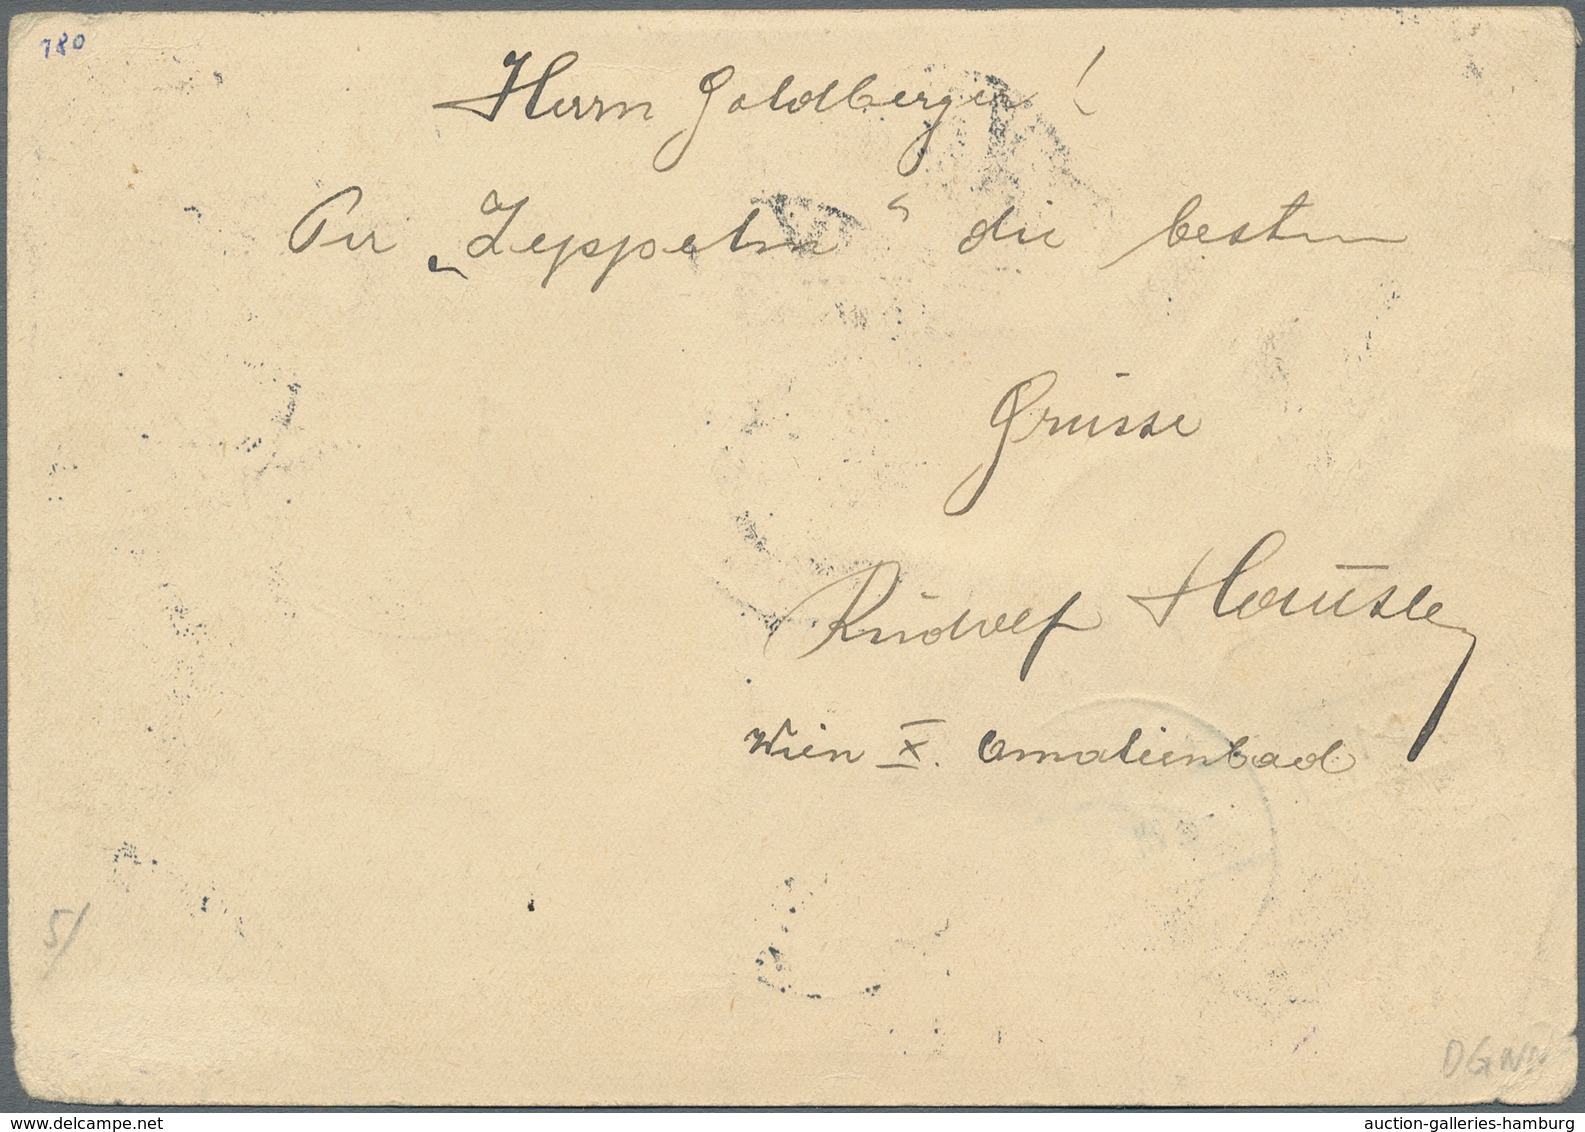 780
Herrn Goldberger!
Per „Zeppelin“ die besten
Grüsse
Rudolf Häusle
Wien X. Amalienbad
5/
www.delcampe.net
auction-galleries-hamburg